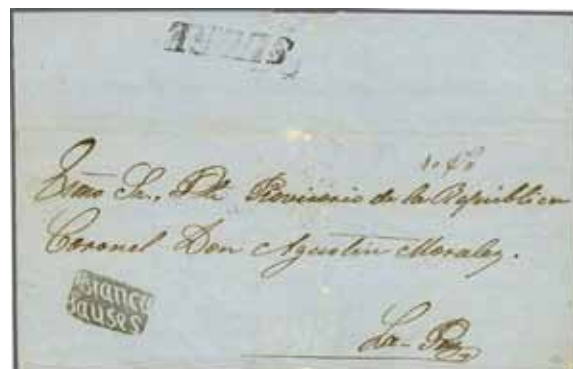 Exmo Sr. Pte Provisorio de la República
Coronel Don Agustin Morales.
Sauses
La Paz